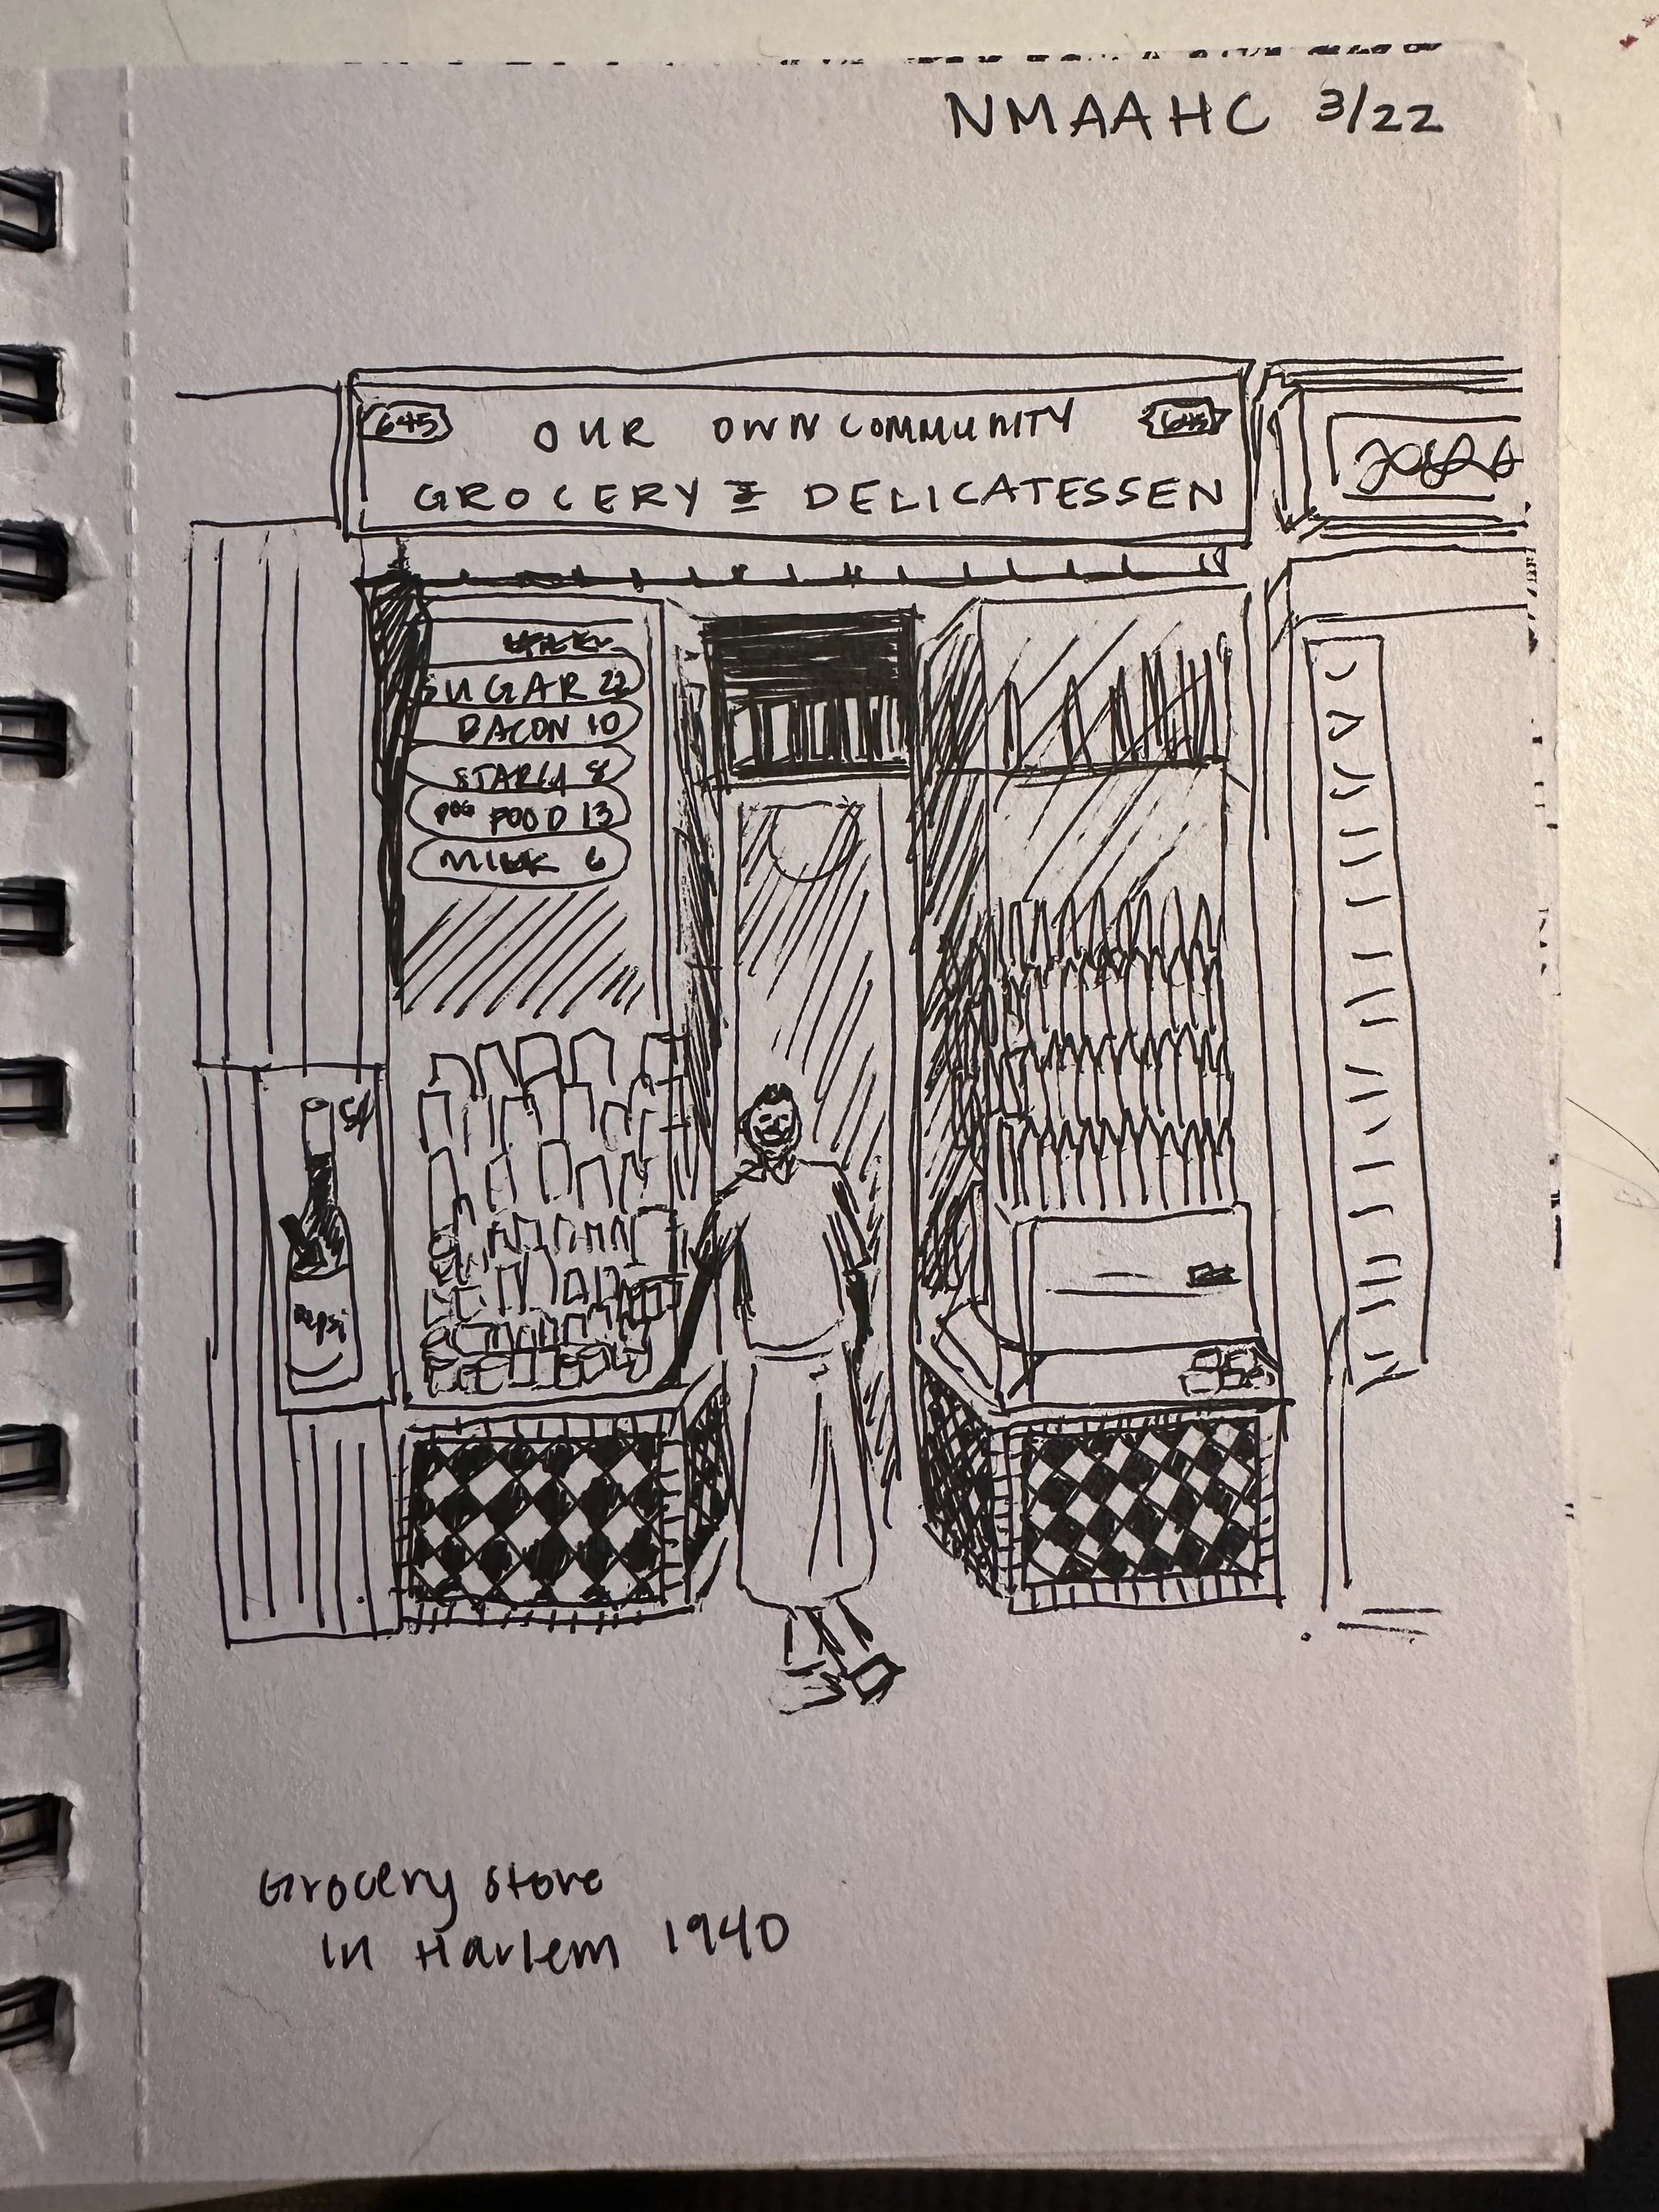 NMAAHC 3/22
645 OUR OWN COMMUNITY 645
GROCERY & DELICATESSEN
SUGAR 22
BACON 10
STARCH 8
DOG FOOD 13
MILK 6
5¢
Pepsi
Grocery store
in Harlem 1940